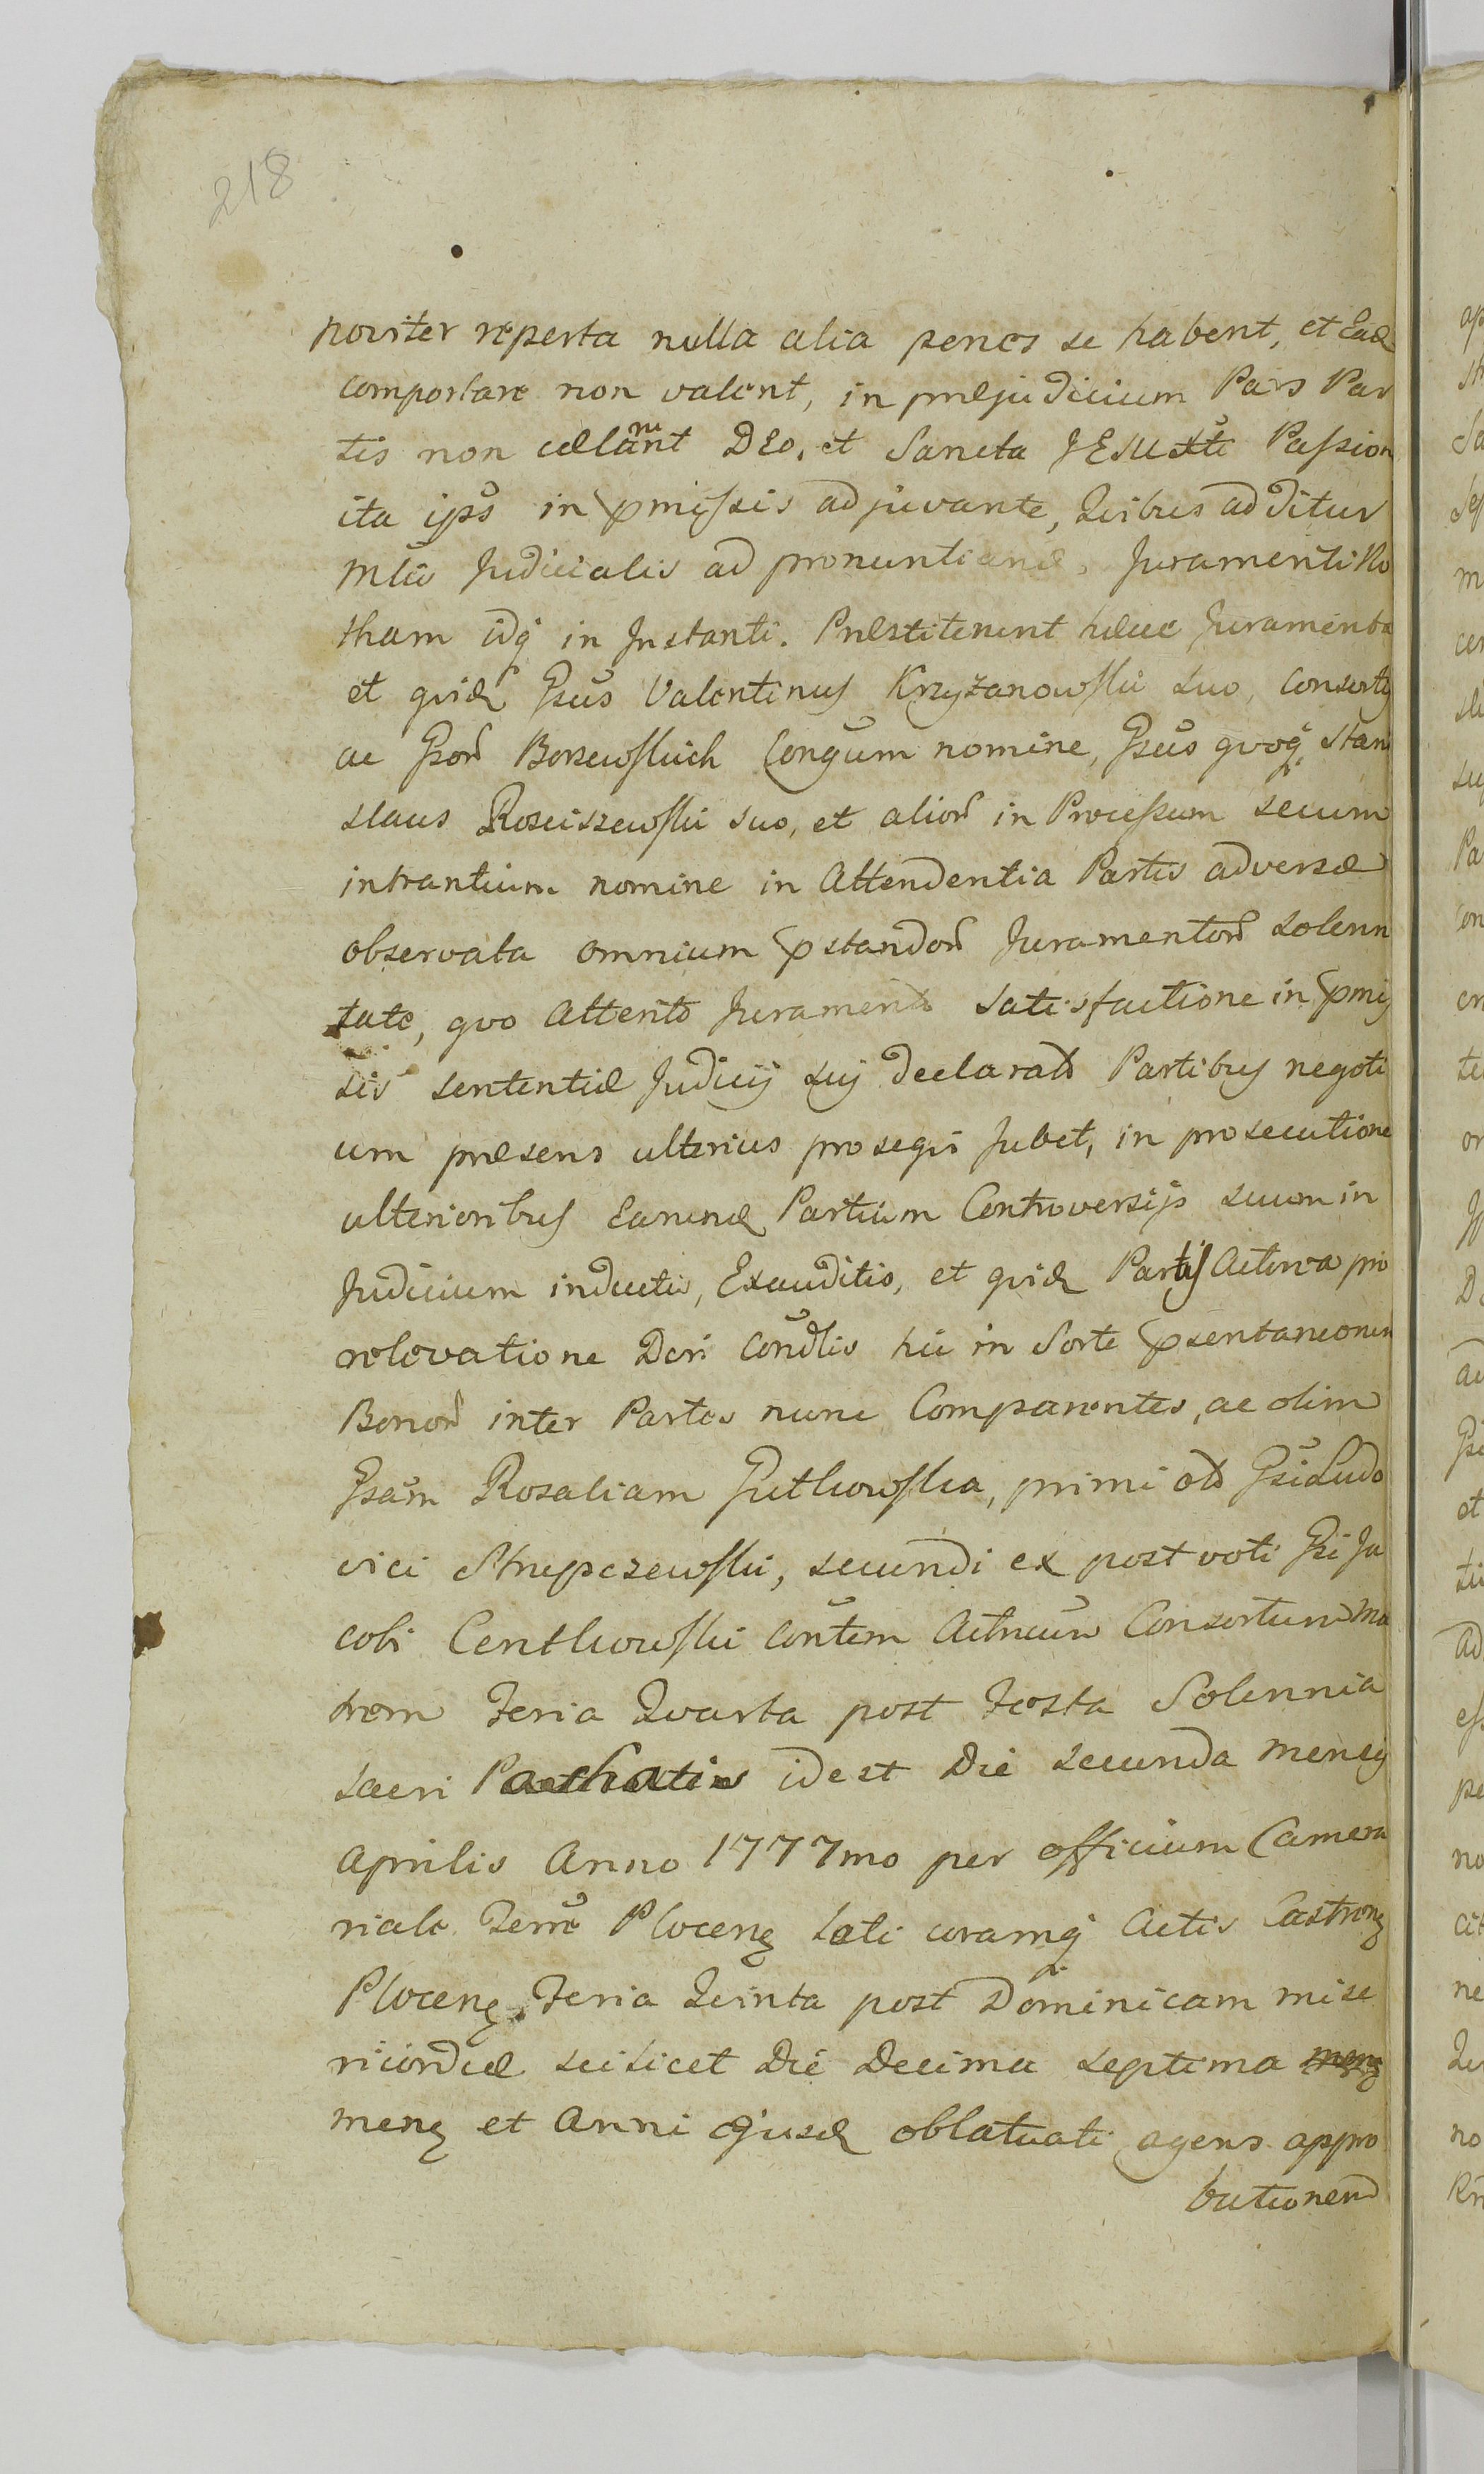 218
noviter reperta nulla alia penes se habent, et Ead
comportare non valent, in præjudicium Pars Par
tis non cælant DEo, et Sancta JESU Xti Passion
ita ipsō in pmissis adjuvante, Quibus additur
Mlis Judicialis ad pronuntiand, Juramenti Ro
tham idq in Instanti. Præstiterunt hæcce Juramenta
et quid Gsus Valentinus Krzyżanowski suo, Consortis
ac Gsorū Borzewskich Congūm nomine, Gsus quoq Stani
slaus Rosciszewski suo, et aliorū in Processum secum
intrantium nomine in Attendentia Partis adversæ
observata omnium pstandorū Juramentorū Solenni
tate, quo Attento Juramento Satisfactione in pmis
sis sententiæ Judicij sui declarato Partibus negoti
um præsens ulterius prosequi Jubet, in prosecutione
ulterioribus Earund Partium Controversijs suum in
Judicium inductis, Exauditis, et quid Partis Actorea pro
relevatione Dcri Condlis hic in Sorte psentaneorum
Bonorū inter Partes nunc Comparentes, ac olim
Gsam Rosaliam Gutkowska, primi oto Gsi Ludo
vici Strupczewski, secundi ex post voti Gsi Ja
cobi Centkowski Contem Actreum Consortum Ma
trem Feria Quarta post Festa Solennia
sacri Paschatis idest Die secunda Mensis
Aprilis Anno 1777mo per officium Camera
riale Terræ Plocen Lati coramq Actis Castren
Plocen Feria Quinta post Dominicam mise
ricordiæ scilicet Die Decima septima mens
mens et Anni Ejusd oblatuati agens appro
bationem